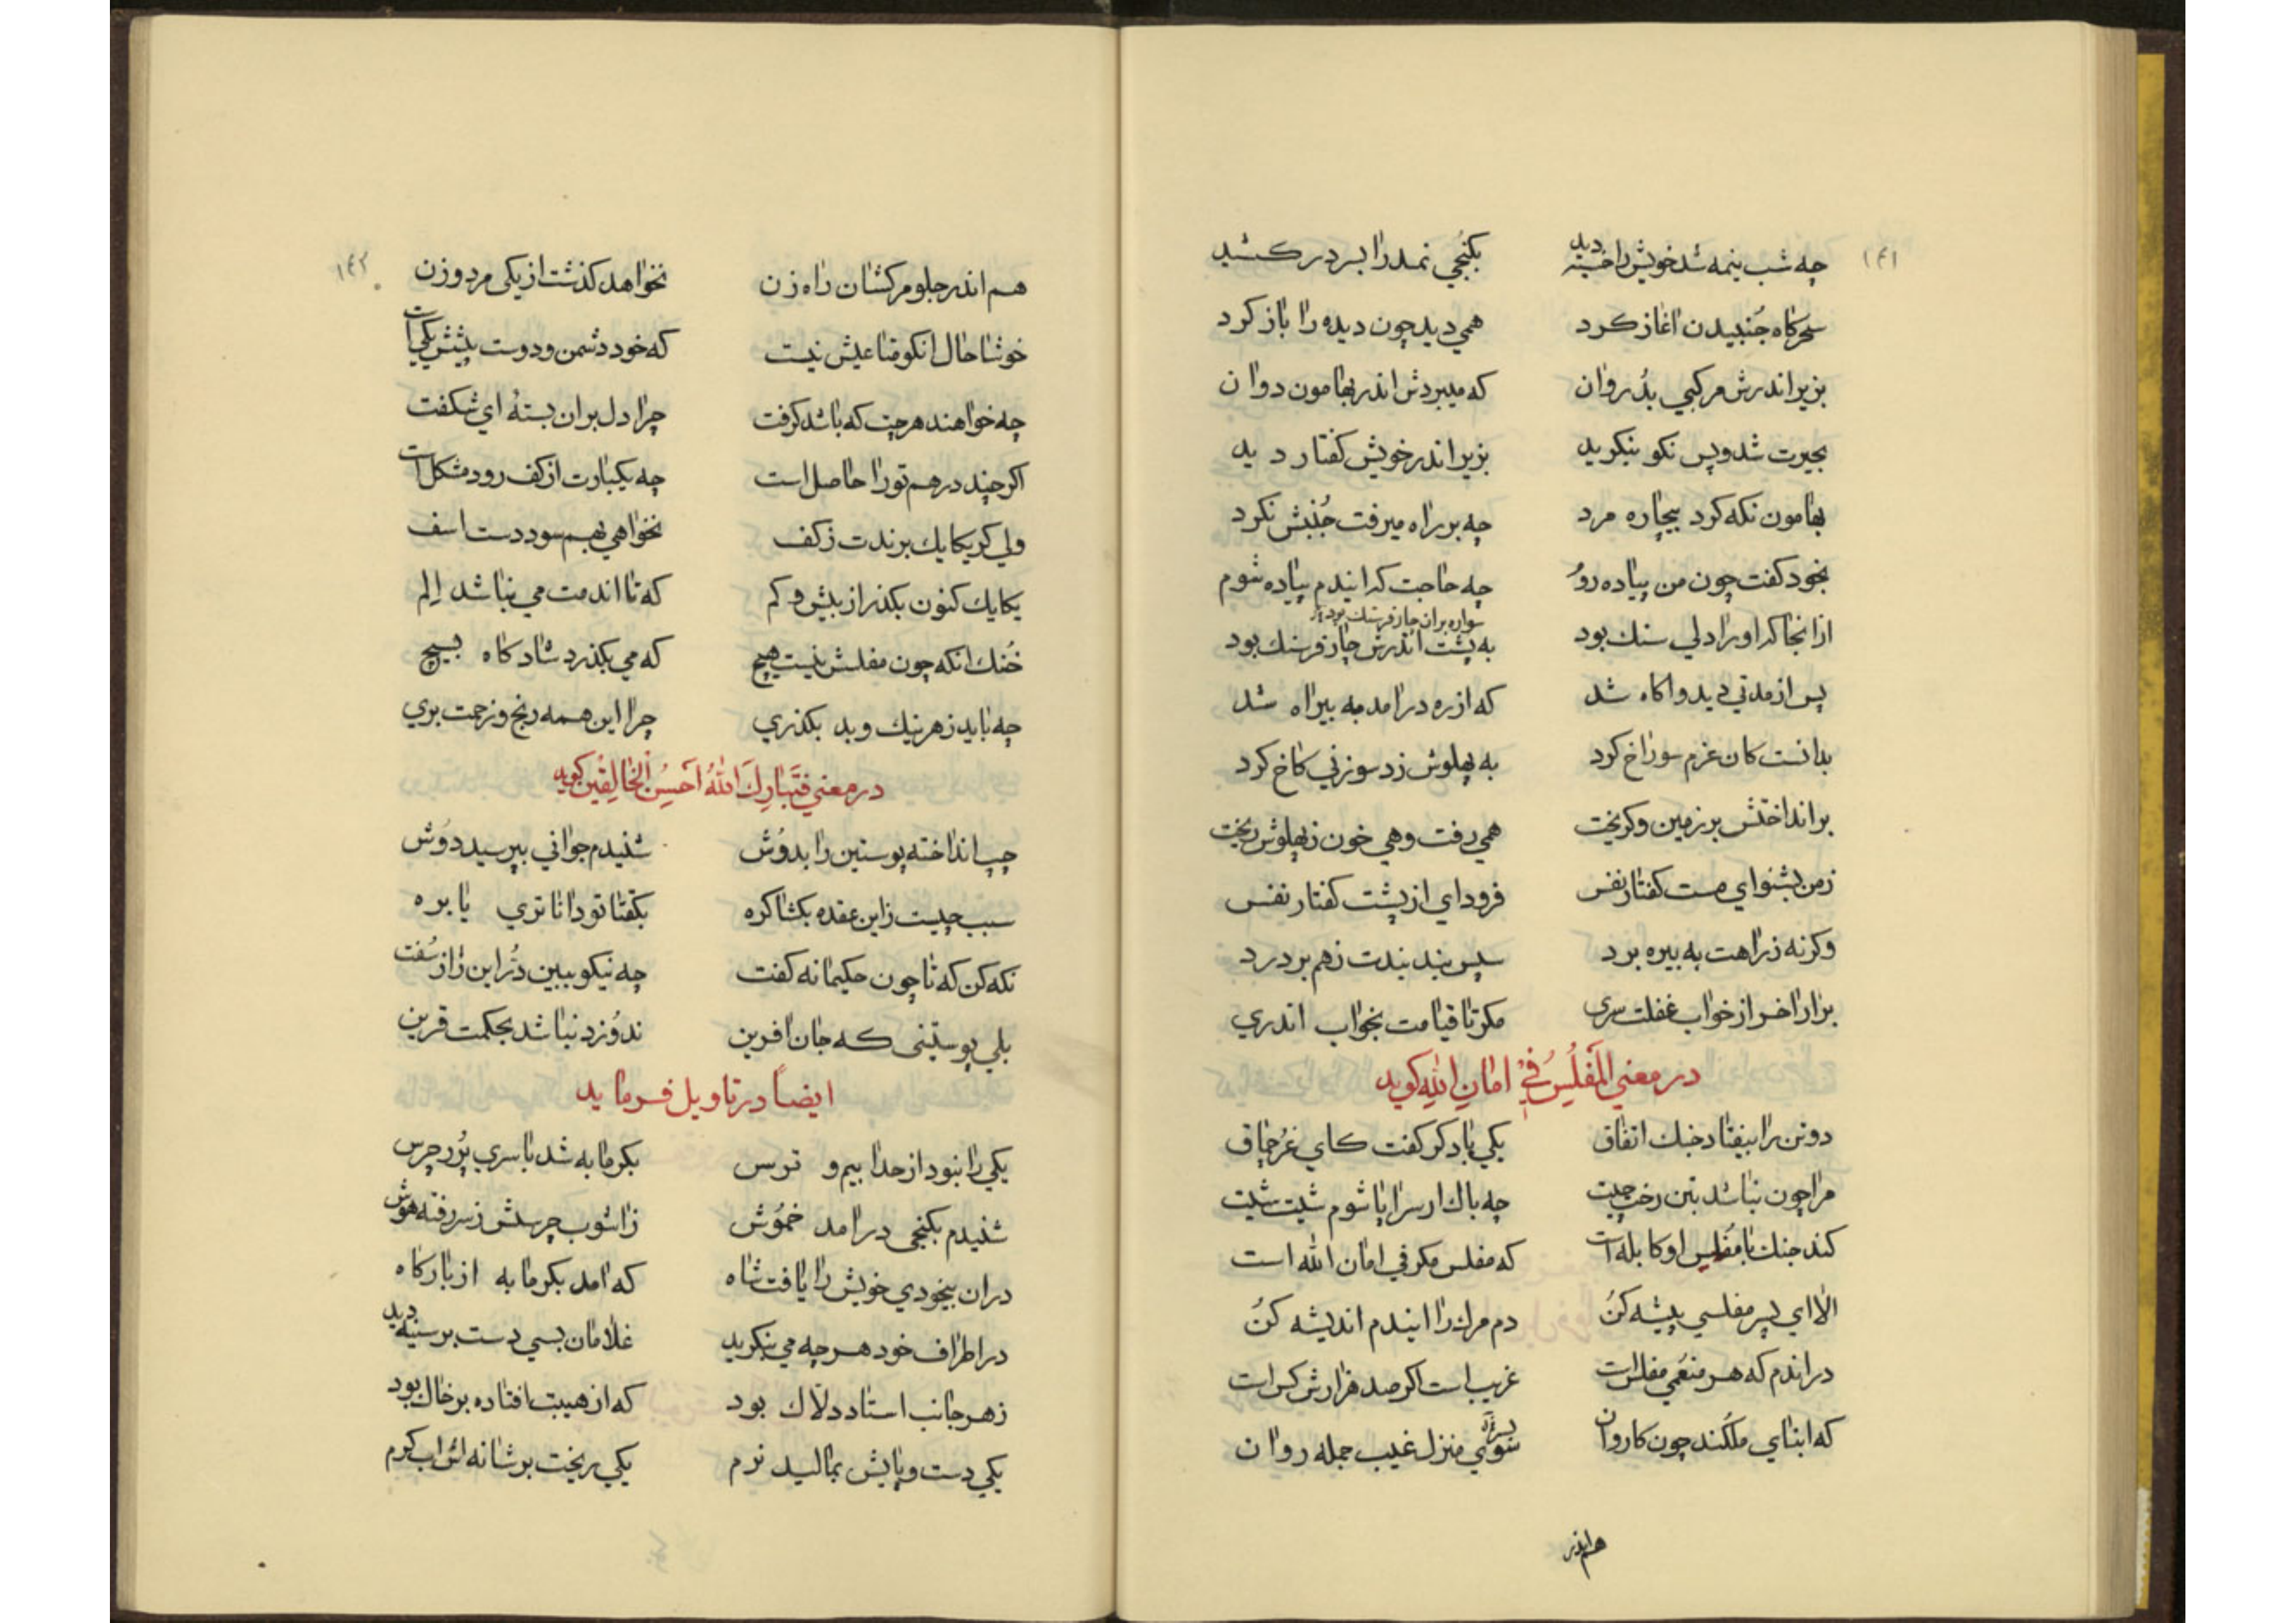 ١٤١
چه شب نیمه شد خویش را خسته دید بکنجی نمد را بسر در کشید
سحرکاه جُنبیدن اغاز کرد همی دید چون دیده را باز کرد
بزیر اندرش مرکبی بُد روان که میبردش اندر بهامون دوان
بحیرت شد و پس نکو بنکرید بزیر اندر خویش کفتار دید
بهامون نکه کرد بیچاره مرد چه بر راه میرفت جُنبش نکرد
بخود کفت چون من پیاده روُم چه حاجت که ایندم پیاده شوم
سواره بران چار فرسنك بود
ازانجا که او را دلی سنك بود به پشت اندرش چار فرسنك بود
پس از مدتی دید و اکاه شد که از ره درامد به بیراه شد
بدانست کان عزم سوراخ کرد به پهلوش زد سوزنی کاخ کرد
بر انداختش بر زمین و کریخت همی رفت و همی خون ز پهلوش ریخت
ز من بشنو ای مست کفتار نفس فرود ای از پشت کفتار نفس
وکرنه ز راهت به بیره برد سپس بند بندت ز هم بردرد
برار اخر از خواب غفلت سری مکر تا قیامت بخواب اندری
در معنی المُفلِسُ فی امانِ اللهِ کوید
دو تن را بیفتاد جنك اتفاق یکی با دکر کفت کای غرُچاق
مرا چون نباشد بتن رخت چیت چه باك ار سراپا شوم شیت شیت
کند جنك با مفلس او کابله است که مفلس مکر فی امان الله است
الا ای پسر مفلسی پیشه کنُ دم مرك را ایندم اندیشه کنُ
در اندم که هر منعمی مفلس است غریب است اکر صد هزارش کس است
که ابنای ملکند چون کاروان سوی منزل غیب جمله روان
هم اندر
١٤٢
هم اندر جلو مرکشان راه زن نخواهد کذشت از یکی مرد و زن
خوشا حال انکو متاعیش نیست که خود دشمن و دوست پیشش یکی است
چه خواهند هر چت که باشد کرفت چرا دل بران بستهٔ ای شکفت
اکر چند درهم تو را حاصل است چه یکبارت از کف رود مشکل است
ولی کر یکایك برندت ز کف نخواهی بهم سود دست اسف
یکایك کنون بکذر از بیش و کم که تا اندمت می نباشد الم
خُنك انکه چون مفلسش نیست هیچ که می بکذرد شاد کاه بسیچ
چه باید ز هر نیك و بد بکذری چرا این همه رنج و زحمت بری
در معنی فَتَبارَكَ اللهُ اَحسَنُ الخالِقین کوید
چپ انداخته پوستین را بدوُش شنیدم جوانی بپرسید دوُش
سبب چیست زاین عقده بکشا کره بکفتا تو داناتری یا بره
نکه کن که تا چون حکیمانه کفت چه نیکو ببین دُرّ این راز سُفت
بلی پوستینی که جان افرین ندوُزد نباشد بحکمت قرین
ایضاً در تاویل فرماید
یکی را نبود از خدا بیم و ترس بکرمابه شد با سری پُر ز چرس
شنیدم بکنجی درامد خموُش ز اشوب چرسش ز سر رفته هوُش
دران بیخودی خویش را یافت شاه که امد بکرمابه از بارکاه
در اطراف خود هر چه می بنکرید غلامان بسی دست بر سینه دید
ز هر جانب استاد دلّاك بود که از هیبت افتاده بر خاك بود
یکی دست و پایش بمالید نرم یکی ریخت بر شانه اش اب کرم